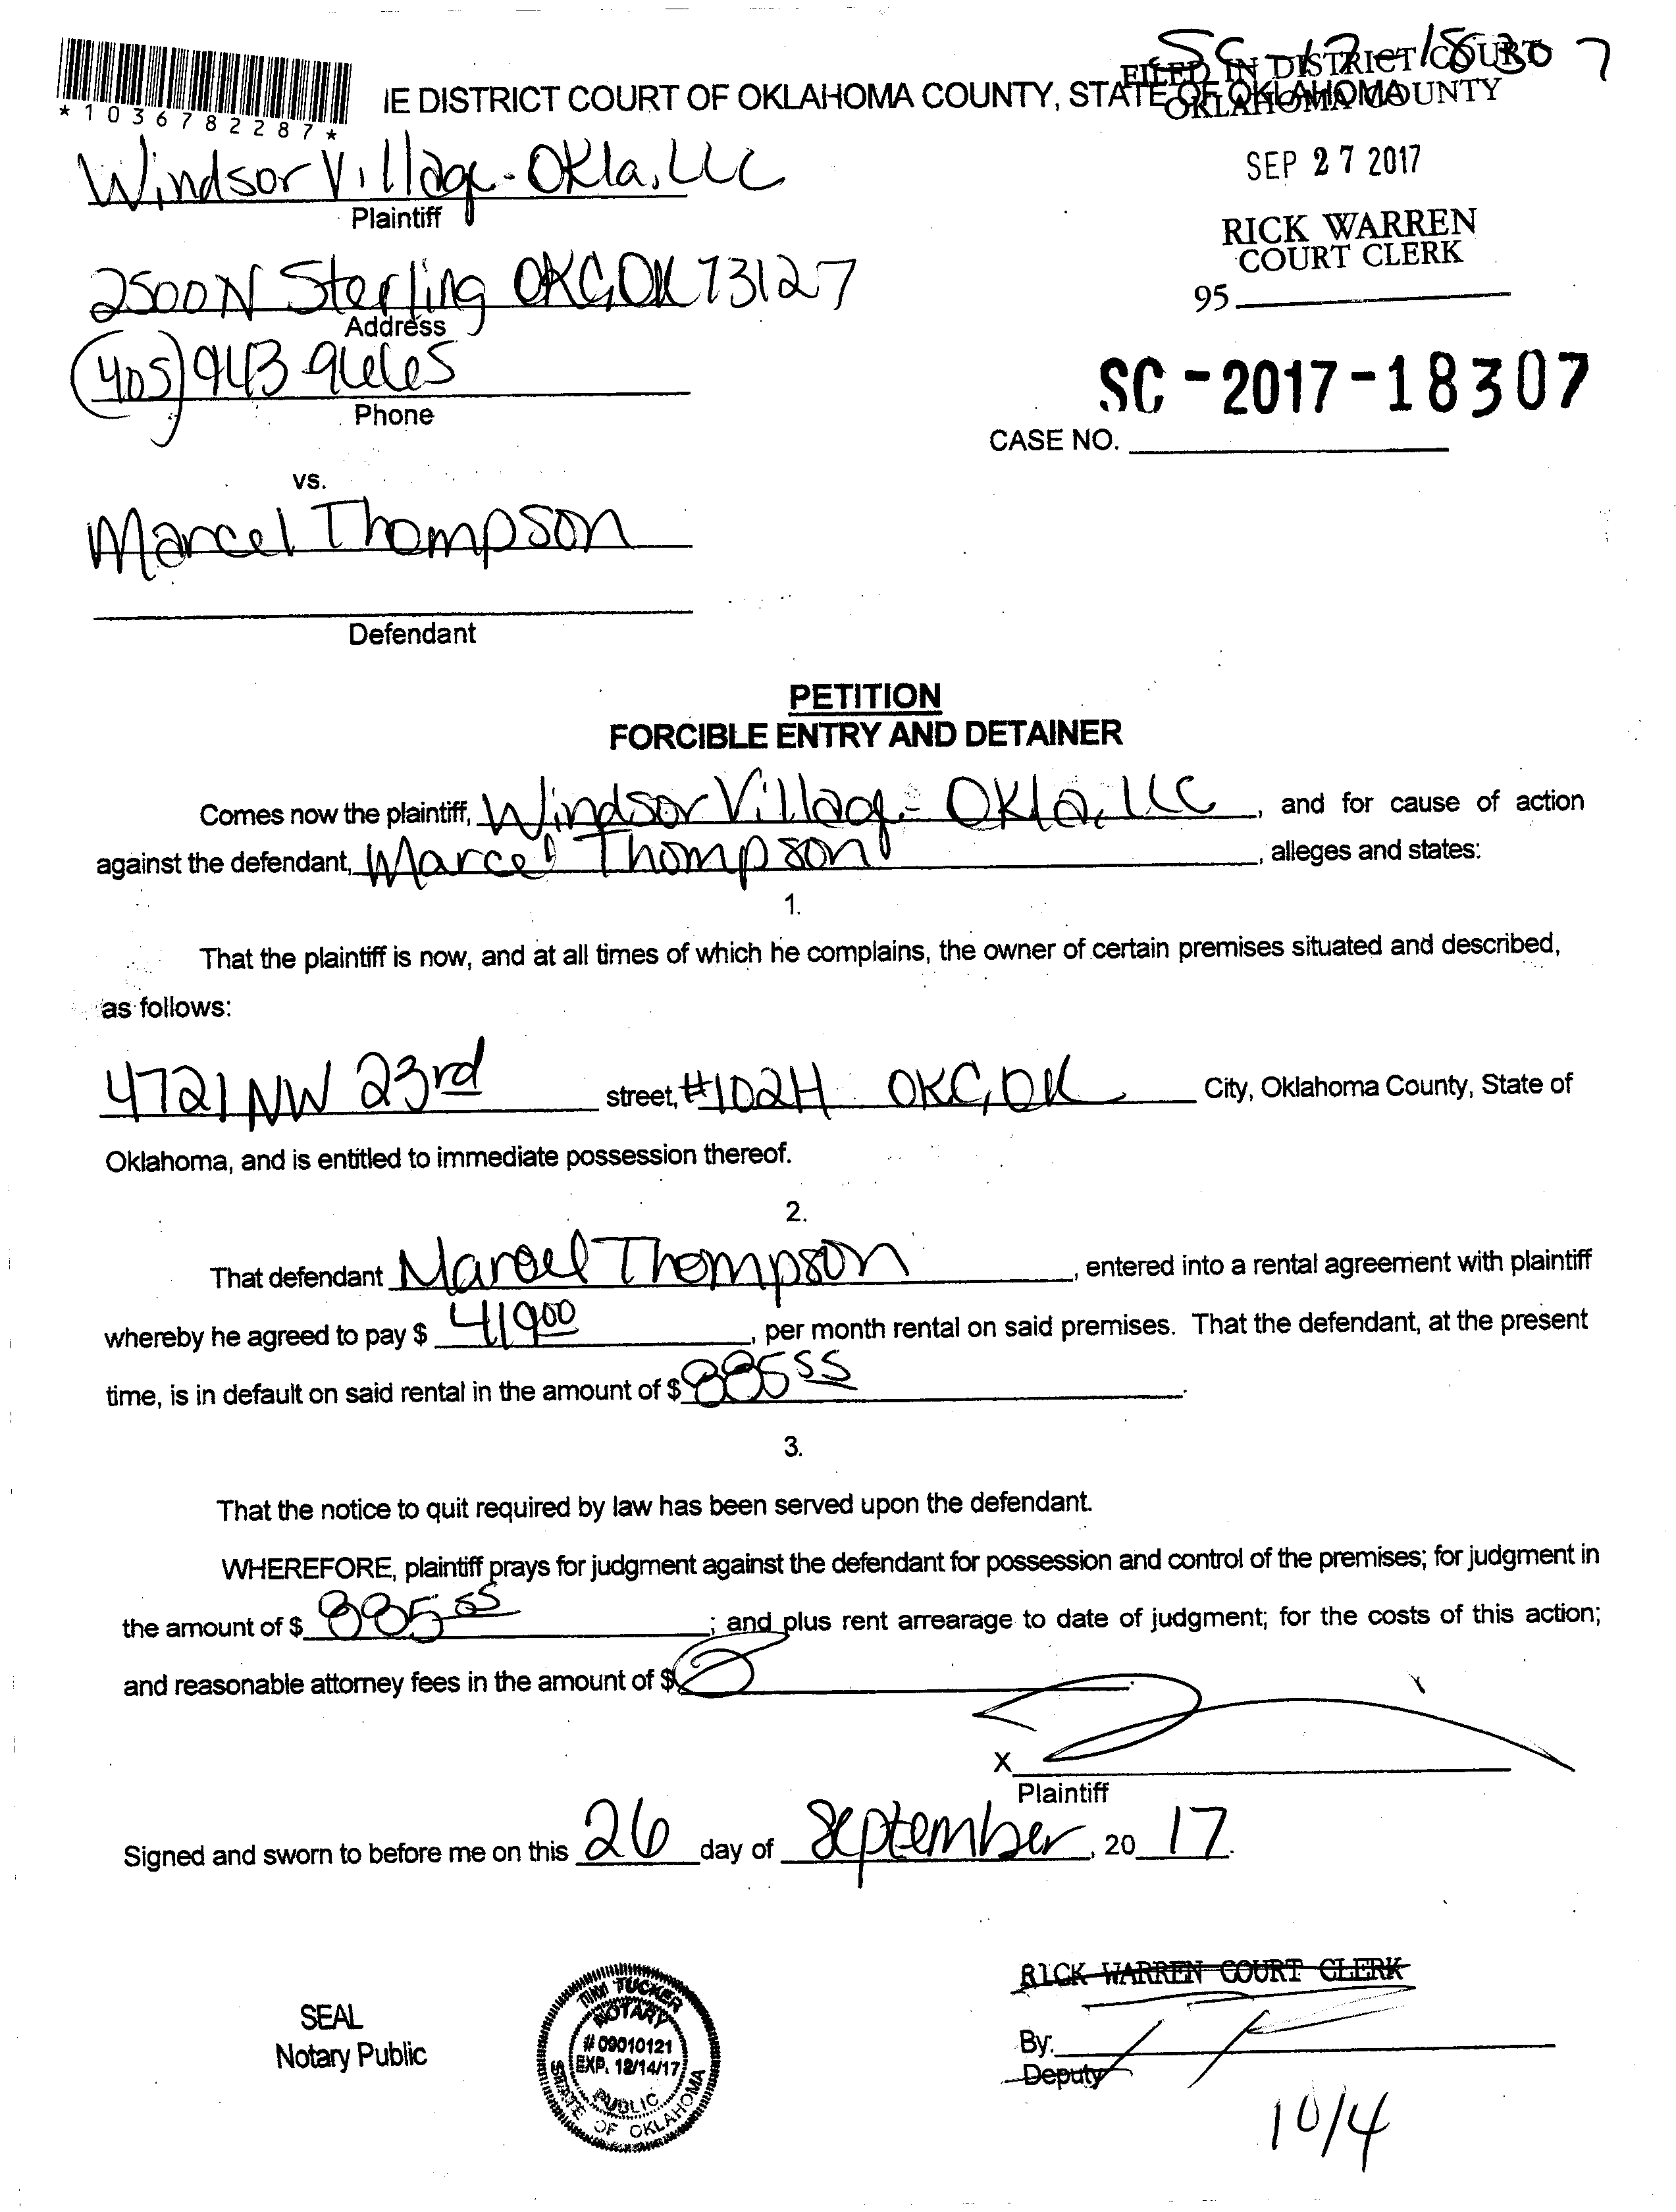 SC-17-18307
FILED IN DISTRICT COURT
OKLAHOMA COUNTY
*1036782287*
IE DISTRICT COURT OF OKLAHOMA COUNTY, STATE OF OKLAHOMA
SEP 27 2017
RICK WARREN
COURT CLERK
95
Windsor Village-Okla, LLC
Plaintiff
2500 N Sterling OKC, OK 73127
Address
(405) 943 9665
Phone
SC-2017-18307
CASE NO.
vs.
Marcel Thompson
Defendant
PETITION
FORCIBLE ENTRY AND DETAINER
Comes now the plaintiff, Windsor Village-Okla, LLC, and for cause of action
against the defendant, Marcel Thompson, alleges and states:
1.
That the plaintiff is now, and at all times of which he complains, the owner of certain premises situated and described,
as follows:
4721 NW 23rd street, #102H OKC, OK City, Oklahoma County, State of
Oklahoma, and is entitled to immediate possession thereof.
2.
That defendant Marcel Thompson, entered into a rental agreement with plaintiff
whereby he agreed to pay $ 419.00, per month rental on said premises. That the defendant, at the present
time, is in default on said rental in the amount of $ 885 55.
3.
That the notice to quit required by law has been served upon the defendant.
WHEREFORE, plaintiff prays for judgment against the defendant for possession and control of the premises; for judgment in
the amount of $ 885 55; and plus rent arrearage to date of judgment; for the costs of this action;
and reasonable attorney fees in the amount of $ 0.
X
Plaintiff
Signed and sworn to before me on this 26 day of September, 20 17.
SEAL
Notary Public
TIM TUCKER
NOTARY
# 09010121
EXP. 12/14/17
PUBLIC
STATE OF OKLAHOMA
RICK WARREN COURT CLERK
By:
Deputy
10/4